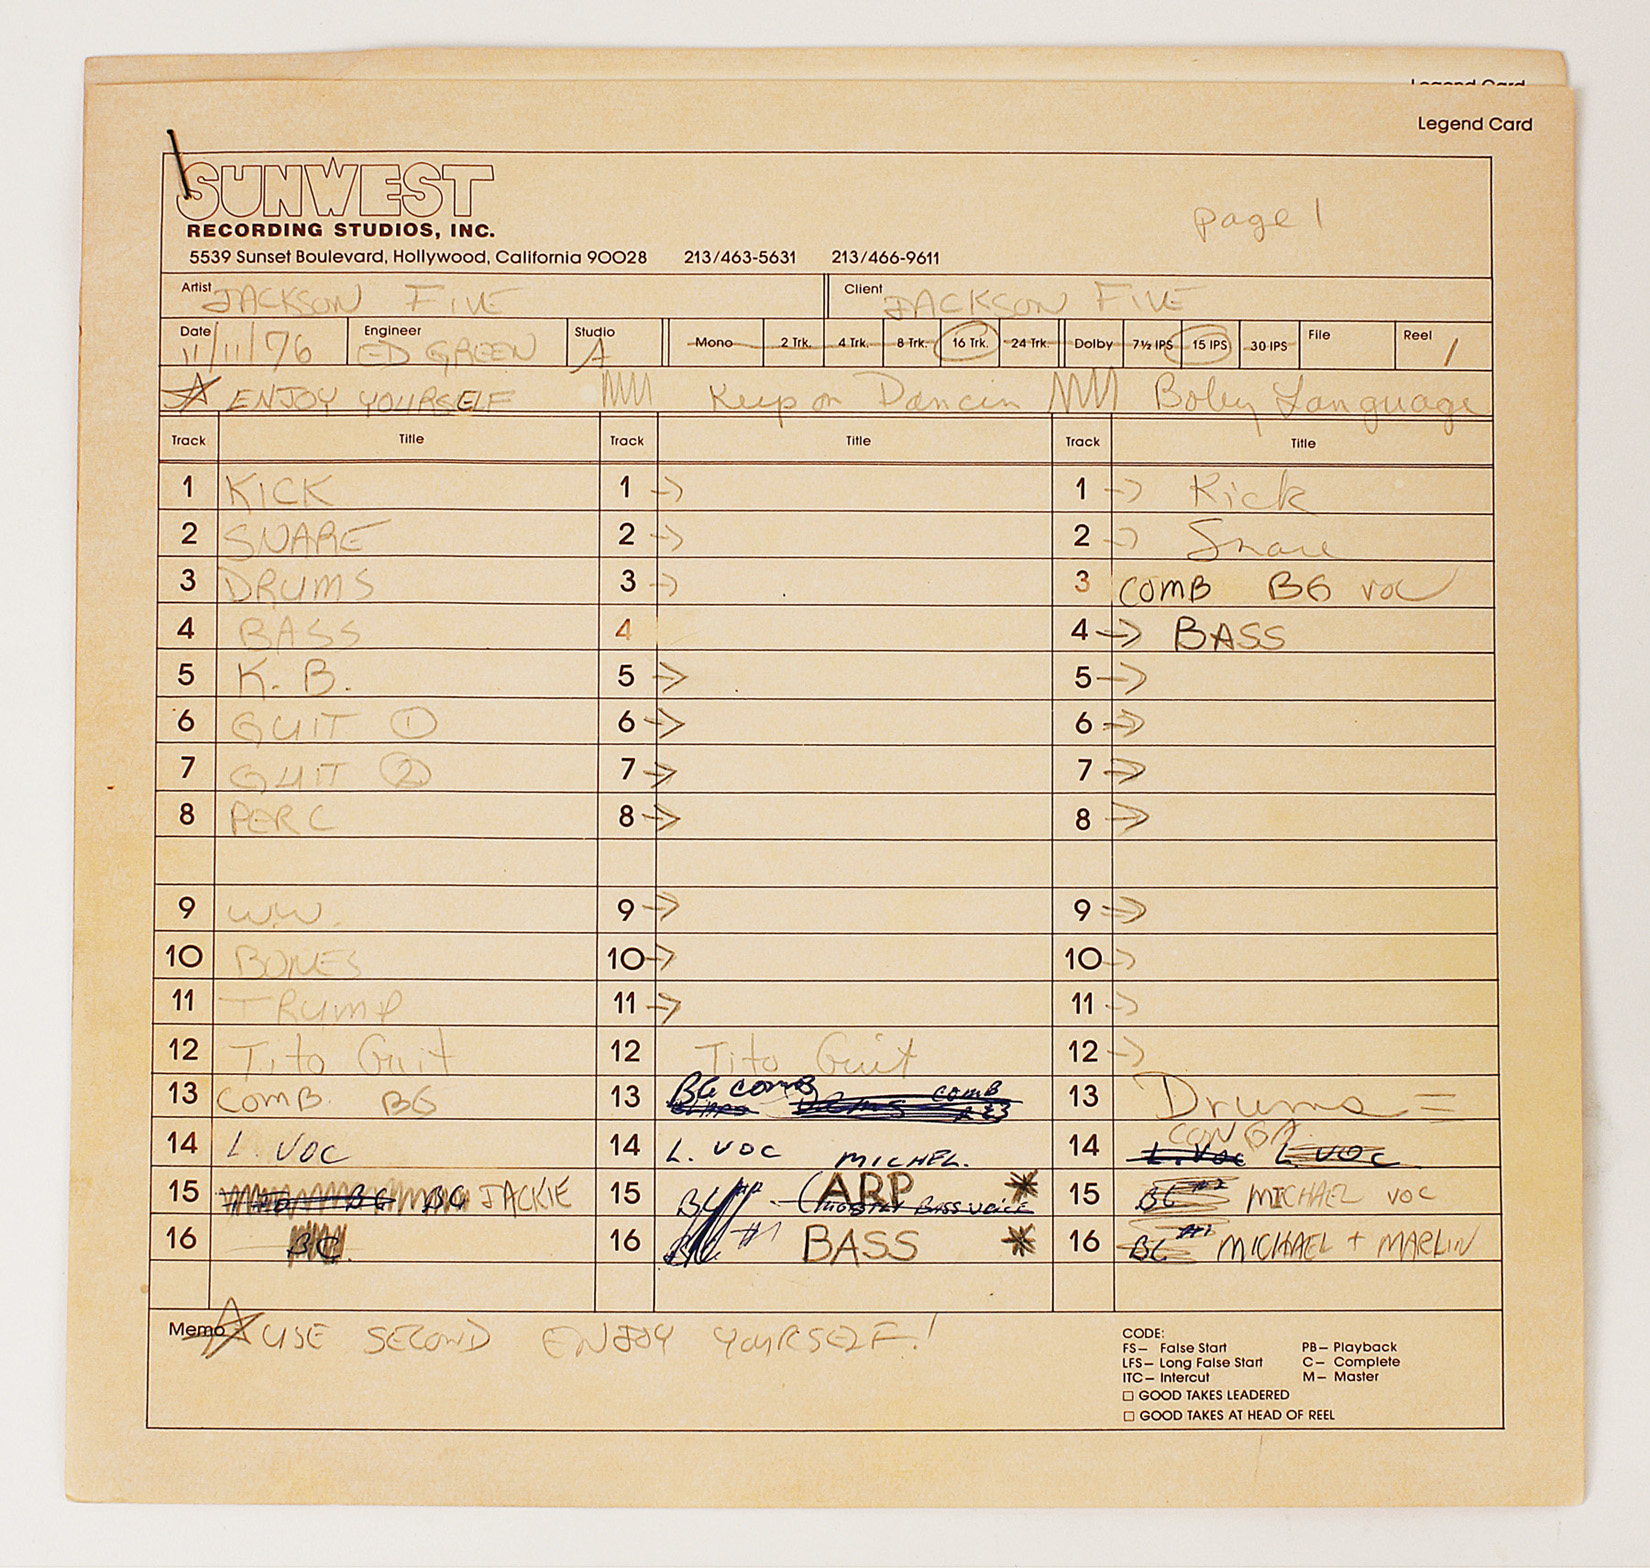 Legend Card
SUNWEST
RECORDING STUDIOS, INC.
page 1
5539 Sunset Boulevard, Hollywood, California 90028 213/463-5631 213/466-9611
Artist JACKSON FIVE Client JACKSON FIVE
Date 11/11/76 Engineer ED GREEN Studio A Mono 2 Trk. 4 Trk. 8 Trk. 16 Trk. 24 Trk. Dolby 7½ IPS 15 IPS 30 IPS File Reel 1
☆ ENJOY YOURSELF Keep on Dancin Boby Language
Track Title Track Title Track Title
1 KICK 1 → 1 → Kick
2 SNARE 2 → 2 → Snare
3 DRUMS 3 → 3 COMB BG VOC
4 BASS 4 4 → BASS
5 K. B. 5 → 5 →
6 GUIT ① 6 → 6 →
7 GUIT ② 7 → 7 →
8 PERC 8 → 8 →
9 W.W. 9 → 9 →
10 BONES 10 → 10 →
11 TRUMP 11 → 11 →
12 Tito Guit 12 Tito Guit 12 →
13 COMB. BG 13 BG COMB COMB 13 Drums =
CONGA
14 L. VOC 14 L. VOC MICHEL. 14 L. VOC L. VOC
15 BG BG JACKIE 15 BG #2 ARP BASS VOICE * 15 BG #2 MICHAEL VOC
16 BG. 16 BG #1 BASS * 16 BG #1 MICKAEL + MARLIN
Memo ☆ USE SECOND ENJOY YOURSELF!
CODE:
FS– False Start PB– Playback
LFS– Long False Start C– Complete
ITC– Intercut M– Master
□ GOOD TAKES LEADERED
□ GOOD TAKES AT HEAD OF REEL